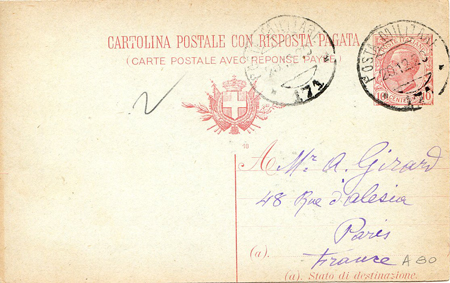 CARTOLINA POSTALE CON RISPOSTA PAGATA
(CARTE POSTALE AVEC RÉPONSE PAYÉE)
POSTA MILITARE
171
POSTA MILITARE
171
A Mr. A. Girard
48 Rue d'alesia
Paris
(a). France A 90
(a). Stato di destinazione.